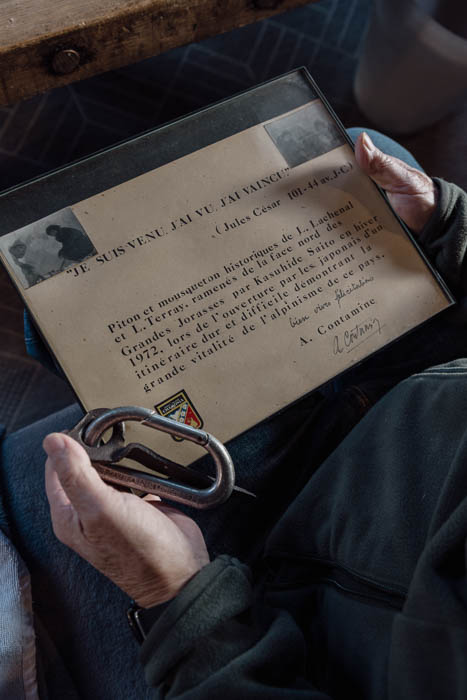 "JE SUIS VENU, J'AI VU, J'AI VAINCU"
(Jules César 101-44 av. J-C)
Piton et mousqueton historiques de L. Lachenal
et L. Terray, ramenés de la face nord des
Grandes Jorasses par Kasuhide Saito en hiver
1972, lors de l'ouverture par les japonais d'un
itinéraire dur et difficile démontrant la
grande vitalité de l'alpinisme de ce pays.
bien vives félicitations
A. Contamine
A. Contamine